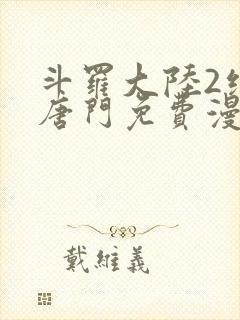 斗羅大陸2
唐門免費漫
戴維義